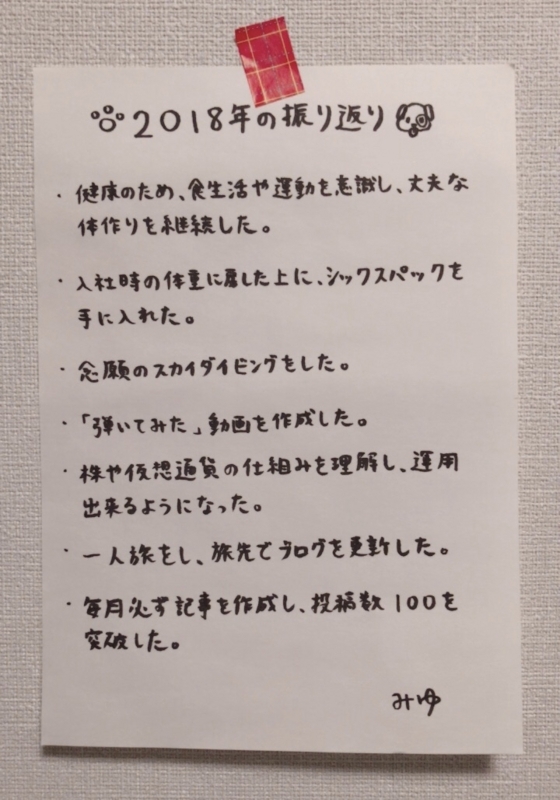 2018年の振り返り
・健康のため、食生活や運動を意識し、丈夫な
体作りを継続した。
・入社時の体重に戻した上に、シックスパックを
手に入れた。
・念願のスカイダイビングをした。
・「弾いてみた」動画を作成した。
・株や仮想通貨の仕組みを理解し、運用
出来るようになった。
・一人旅をし、旅先でブログを更新した。
・毎月必ず記事を作成し、投稿数100を
突破した。
みゆ